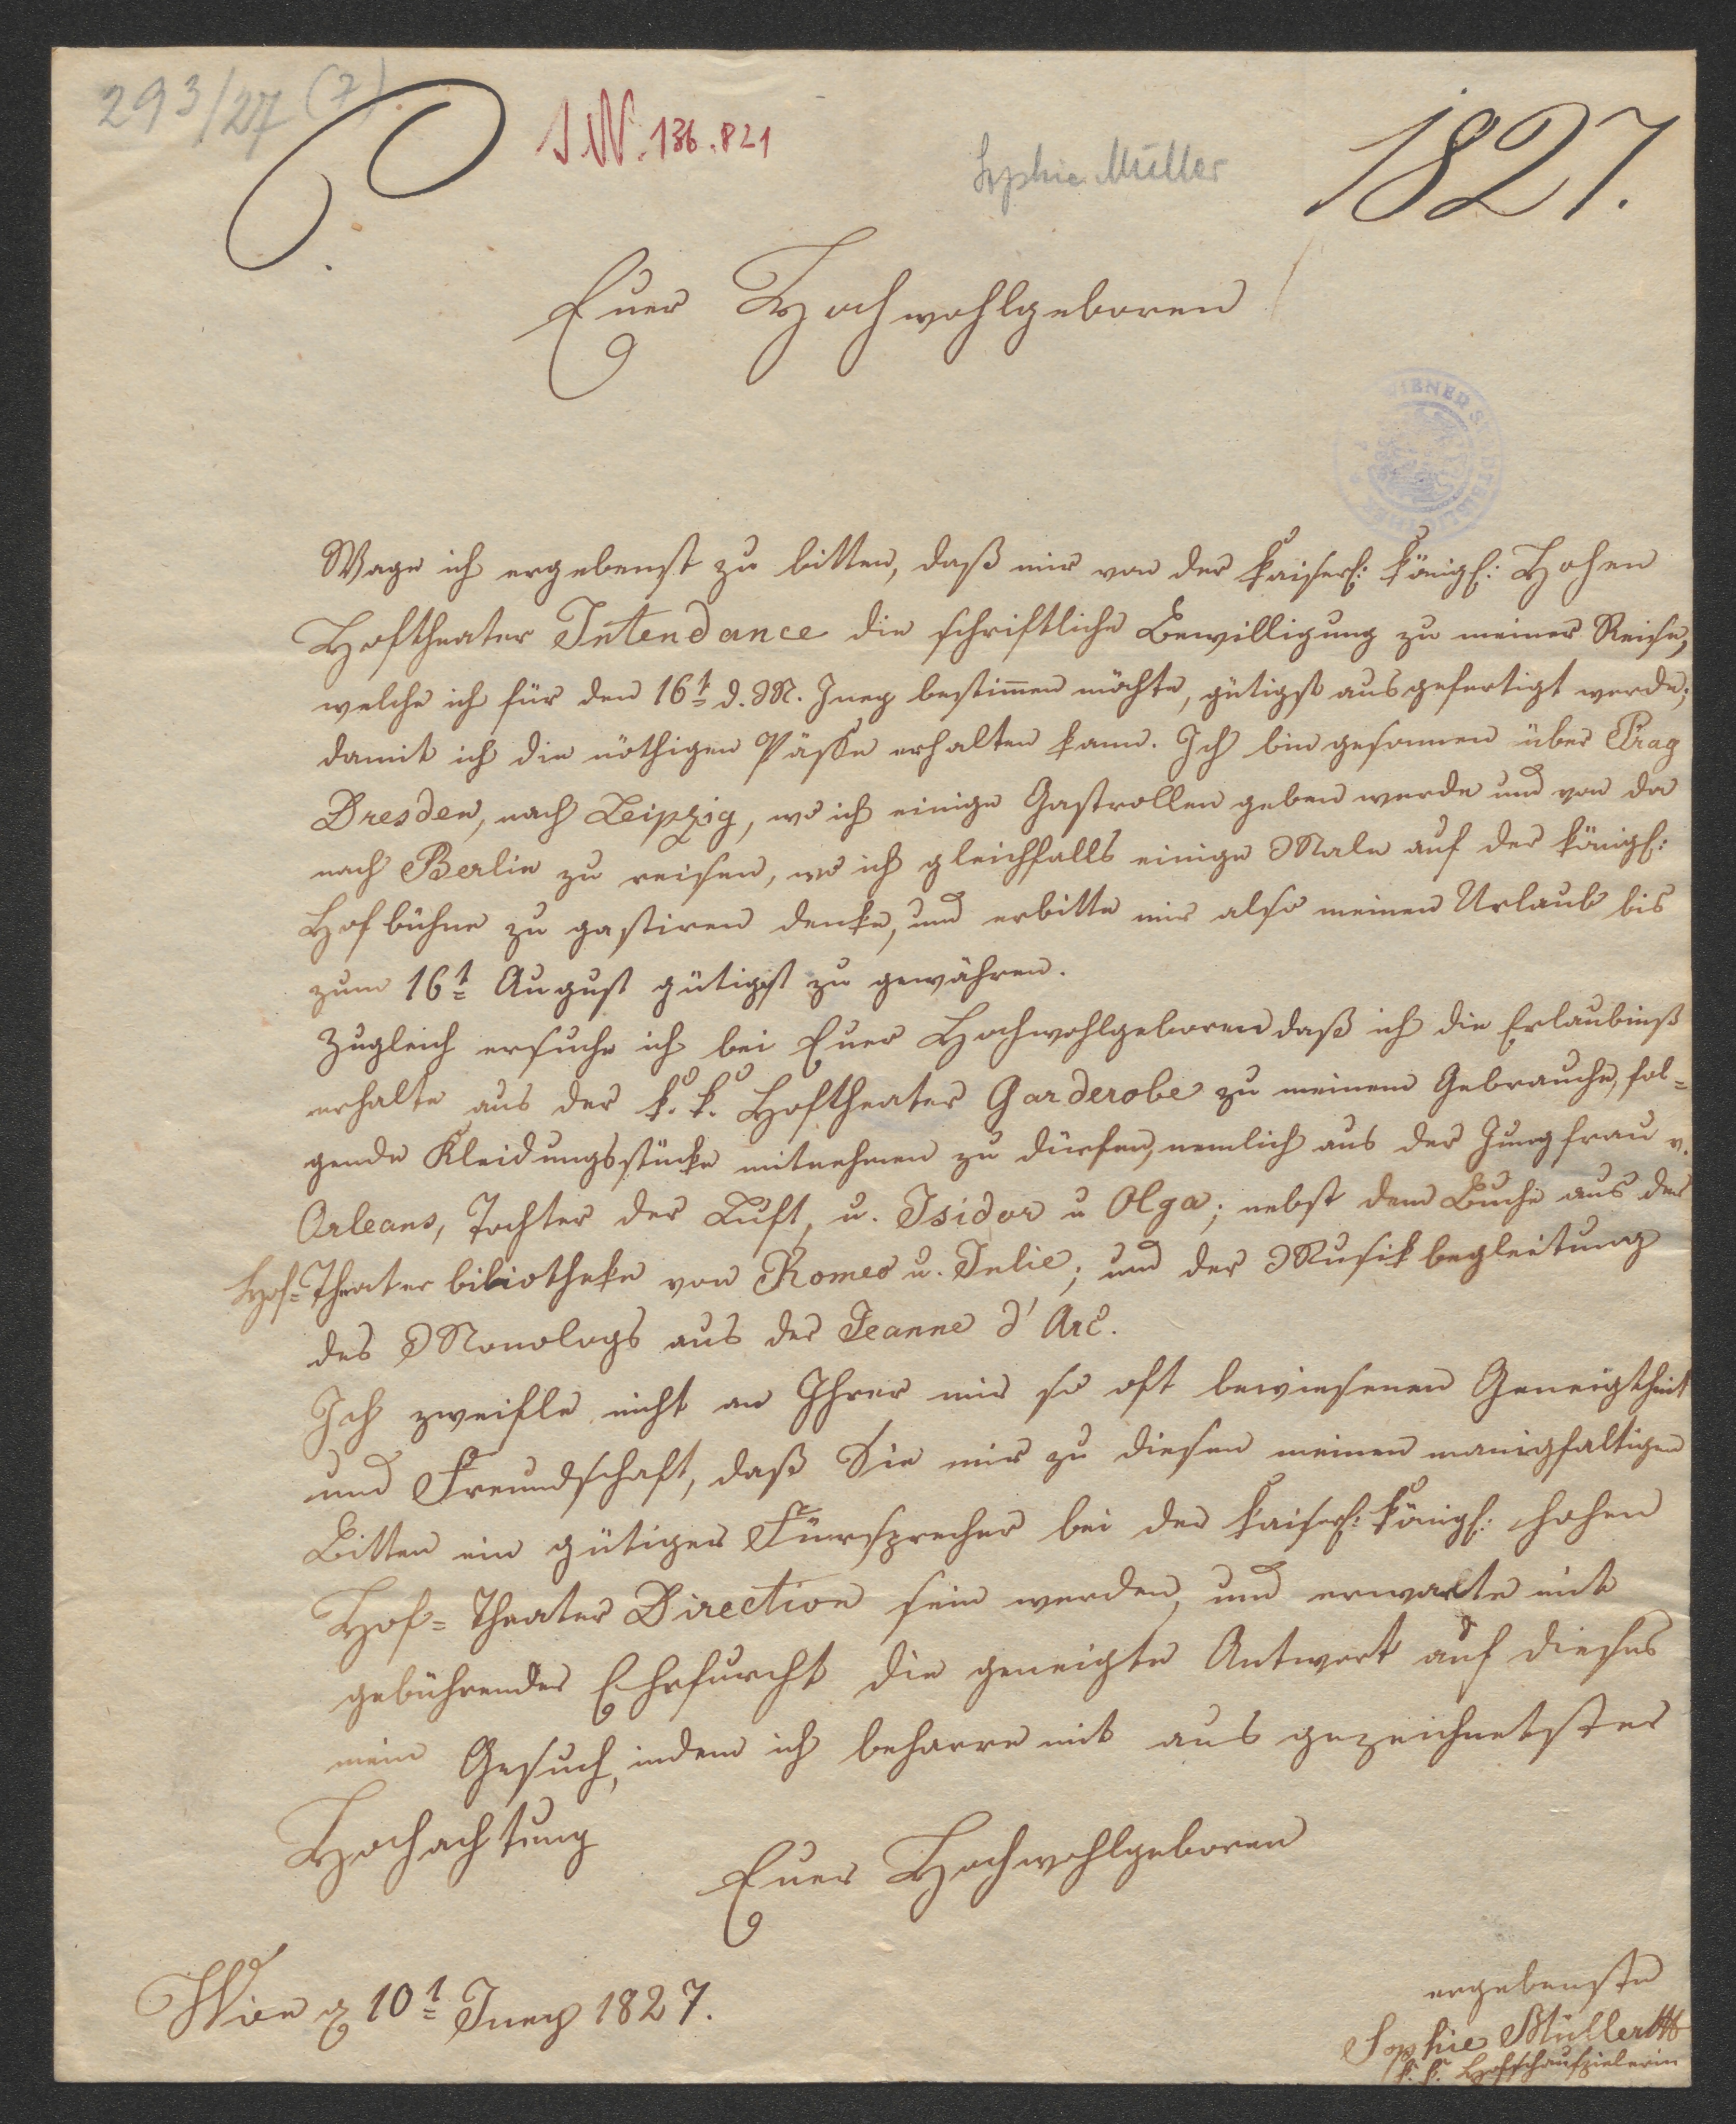 293/27 (7)
I.N. 136.821
Sophie Müller
1827.
Euer Hochwohlgeboren
WIENER STADTBIBLIOTHEK
Wage ich ergebenst zu bitten, daß mir von der kaiserl: königl: Hohen
Hoftheater Intendance die schriftliche Bewilligung zu meiner Reise,
welche ich für den 16t d. M. Juny bestim̄en möchte, gütigst ausgefertigt werde;
damit ich die nöthigen Pässe erhalten kann. Ich bin gesonnen über Prag
Dresden, nach Leipzig, wo ich einige Gastrollen geben werde und von da
nach Berlin zu reisen, wo ich gleichfalls einige Male auf der königl:
Hofbühne zu gastiren denke, und erbitte mir also meinen Urlaub bis
zum 16t August gütigst zu gewähren.
Zugleich ersuche ich bei Euer Hochwohlgeboren daß ich die Erlaubniß
erhalte aus der k. k. Hoftheater Garderobe zu meinem Gebrauche, fol=
gende Kleidungsstücke mitnehmen zu dürfen, nemlich aus der Jungfrau v.
Orleans, Tochter der Luft, u. Isidor u Olga; nebst dem Buche aus der
Hof=Theater bibliotheke von Romeo u. Julie; und der Musikbegleitung
des Monologs aus der Jeanne d'Arc.
Ich zweifle nicht an Ihrer mir so oft bewiesenen Geneigtheit
und Freundschaft, daß Sie mir zu diesen meinen manigfaltigen
Bitten ein gütiger Fürsprecher bei der kaiserl: königl: hohen
Hof=Theater Direction sein werden, und erwarte mit
gebührender Ehrfurcht die geneigte Antwort auf dieses
mein Gesuch, indem ich beharre mit ausgezeichnetster
Hochachtung
Euer Hochwohlgeboren
Wien 10t Juny 1827.
ergebenste
Sophie Müller
k. k. Hofschauspielerin